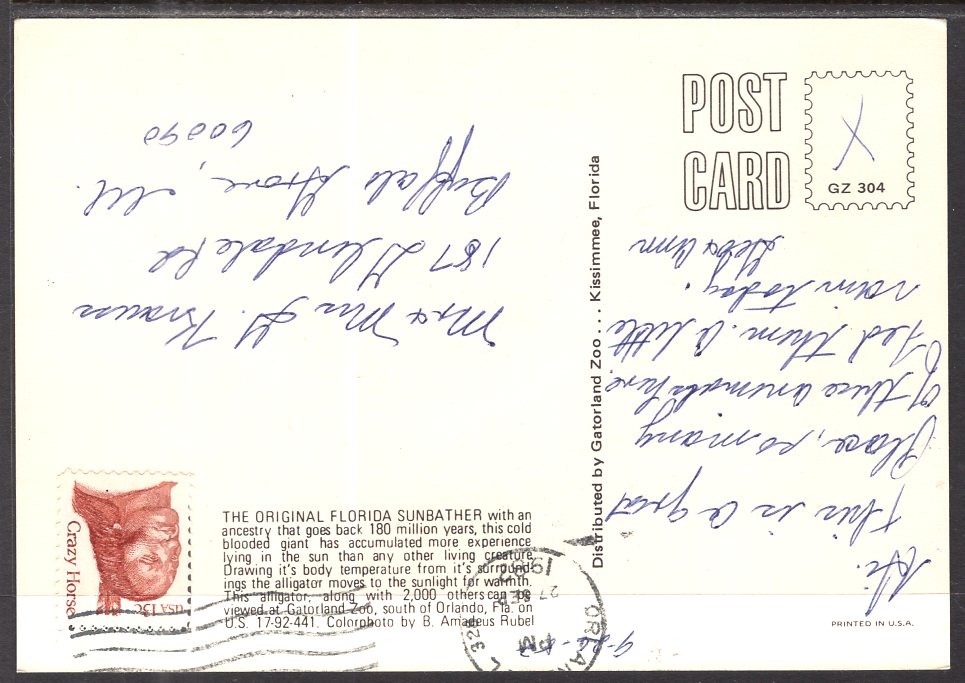 POST
CARD
GZ 304
THE ORIGINAL FLORIDA SUNBATHER with an
ancestry that goes back 180 million years, this cold
blooded giant has accumulated more experience
lying in the sun than any other living creature.
Drawing it's body temperature from it's surround-
ings the alligator moves to the sunlight for warmth.
This alligator, along with 2,000 others can be
viewed at Gatorland Zoo, south of Orlando, Fla. on
U.S. 17-92-441. Colorphoto by B. Amadeus Rubel
Distributed by Gatorland Zoo.... Kissimmee, Florida
PRINTED IN U.S.A.
Crazy Horse
USA 13c
ORLAN
PM
27 SEP
328
Hi.
This is a great
place, so many
of these animals here
Fed them. A little
rain today.
& Ann
Mr & Mrs G. Kraus
187 Glendale Rd
Buffalo Grove, Ill.
60090